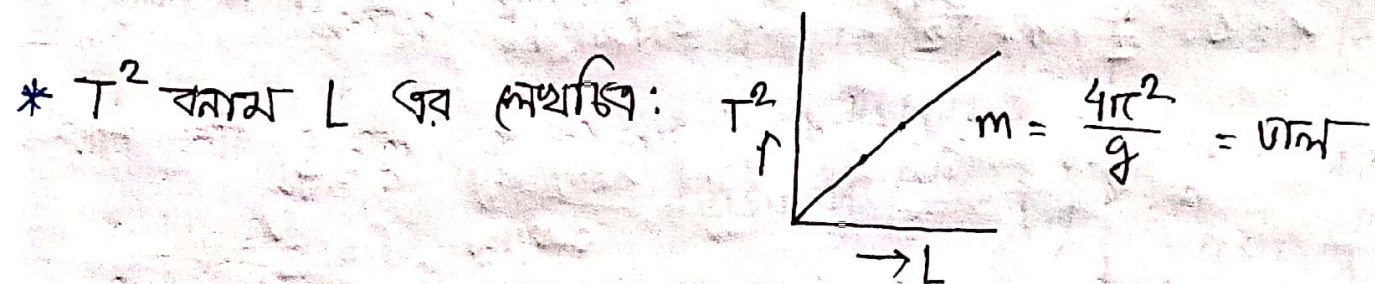 * T² বনাম L এর লেখচিত্র: T² ↑ → L m = 4π²/g = ঢাল